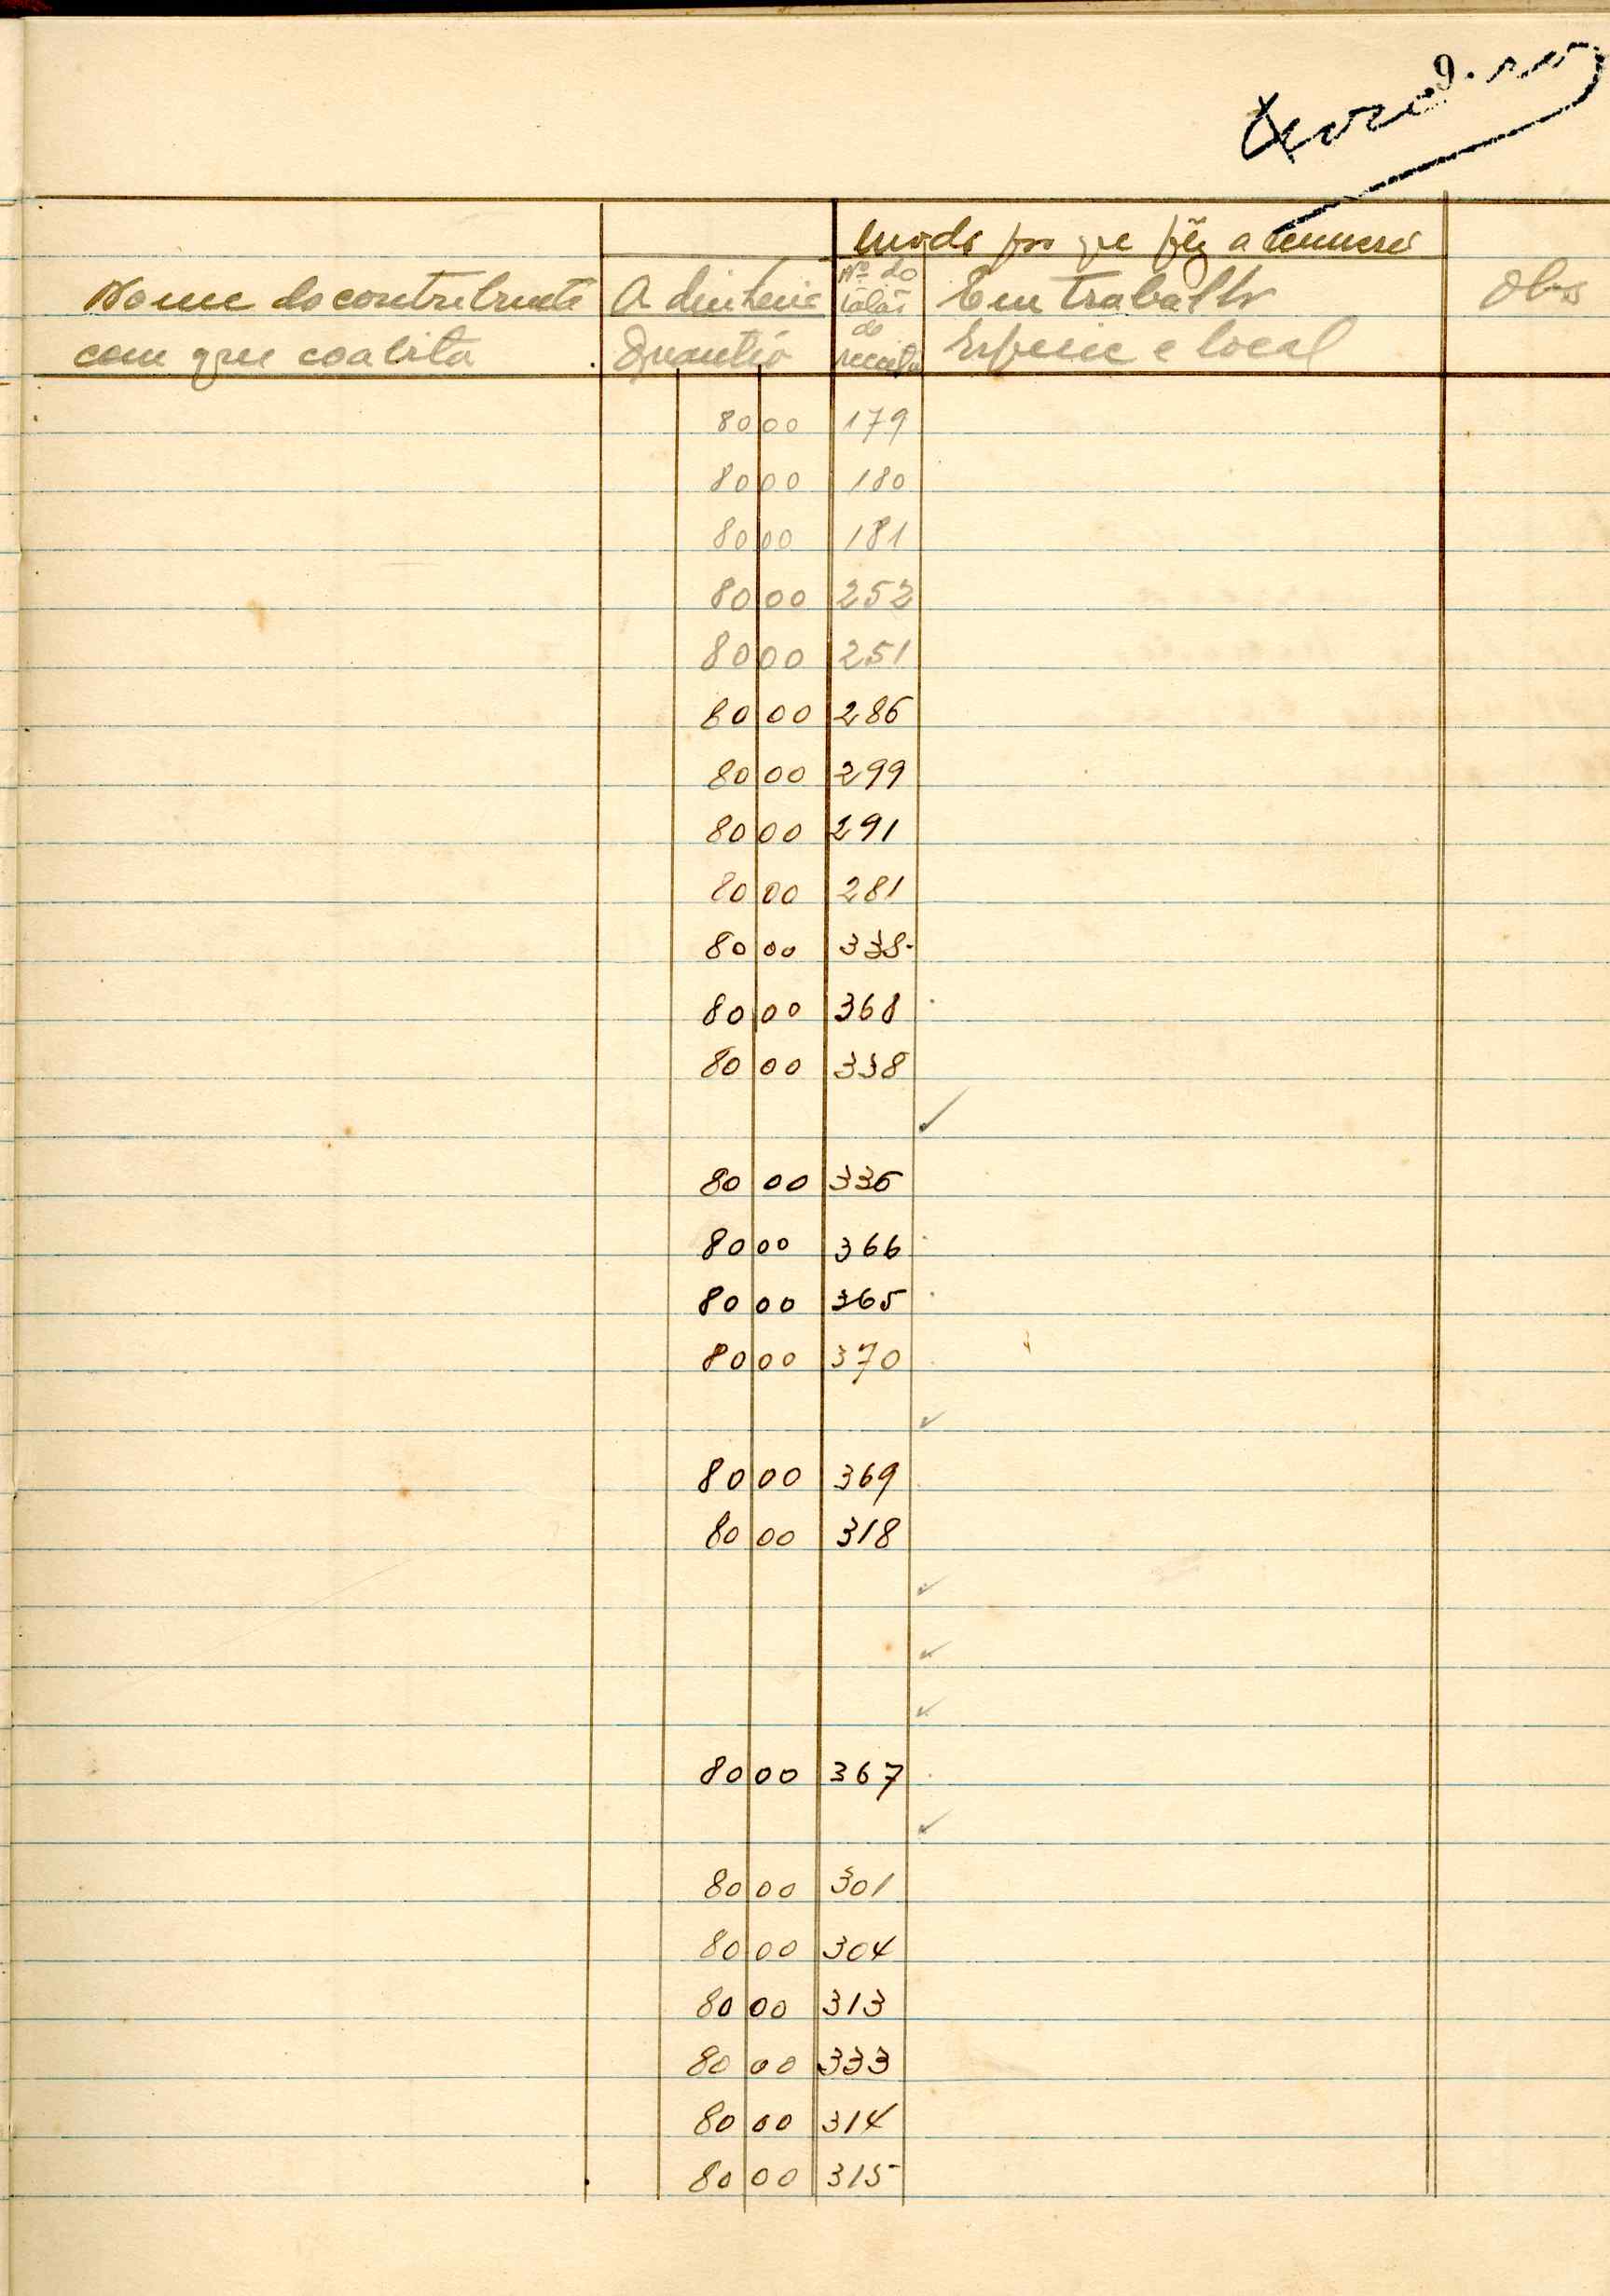 9.
Modo por que fêz a remissão
Nome do contribuinte
com que coabita
A dinheiro
Quantia
Nº do
talão
de
receita
Em trabalho
Espécie e local
Obs
80 00 179
80 00 180
80 00 181
80 00 252
80 00 251
80 00 286
80 00 299
80 00 291
80 00 281
80 00 338
80 00 368
80 00 338
✓
80 00 336
80 00 366
80 00 365
80 00 370
✓
80 00 369
80 00 318
✓
✓
✓
80 00 367
✓
80 00 301
80 00 304
80 00 313
80 00 333
80 00 314
80 00 315